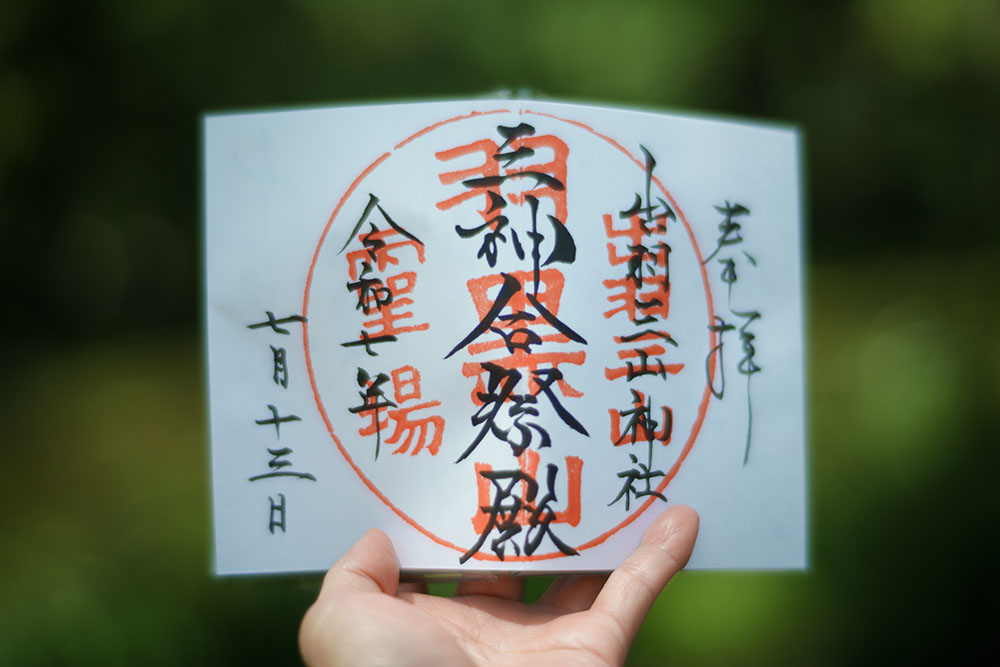 奉拝
出羽三山神社
三神合祭殿
令和七年
七月十三日
出羽三山
羽黒山
霊場